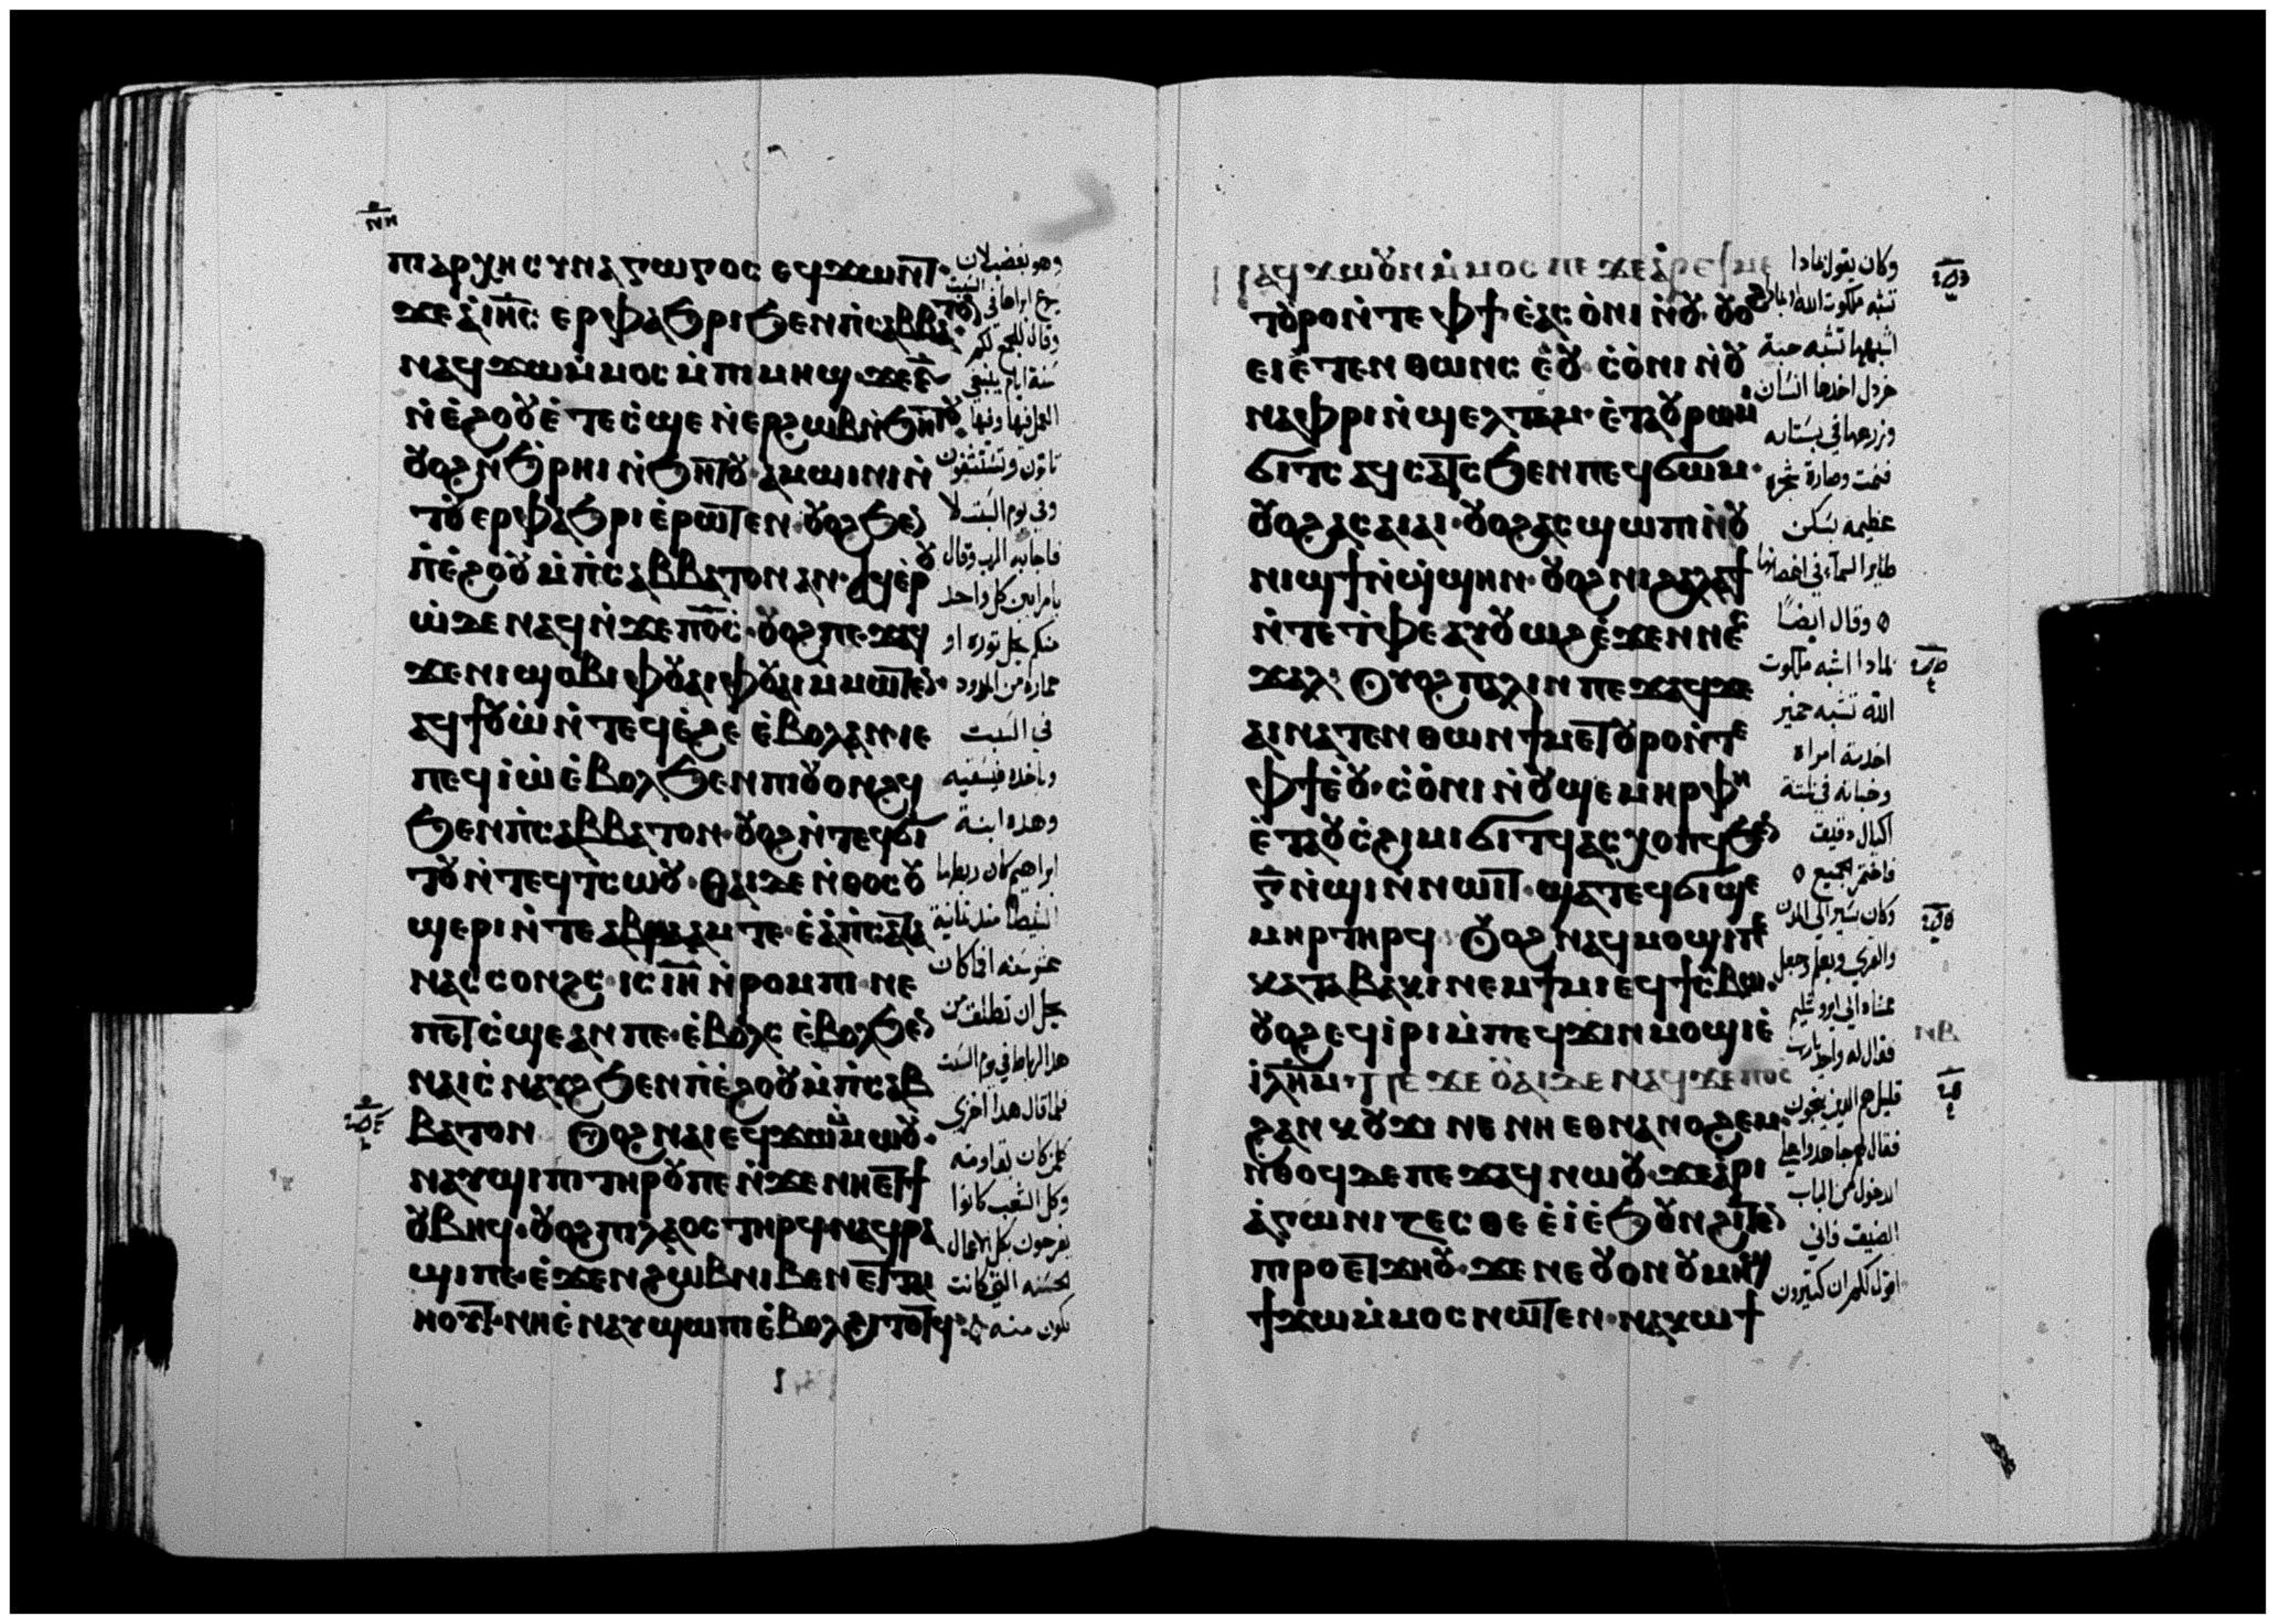 ⲡⲓⲁⲣⲭⲏⲥⲩⲛⲁⲅⲱⲅⲟⲥ ⲉϥϫⲱⲛⲧ
ϫⲉ ⲁ̀ ⲓⲏ̅ⲥ̅ ⲉⲣⲫⲁϧⲣⲓ ϧⲉⲛ ⲡ̀ⲥⲁⲃⲃⲁⲧⲟⲛ
ⲛⲁϥϫⲱ ⲙ̀ⲙⲟⲥ ⲙ̀ⲡⲓⲙⲏϣ ϫⲉ ⲋ̅
ⲛ̀ⲉ̀ϩⲟⲟⲩ ⲉ̀ⲧⲉⲥ̀ϣⲉ ⲛ̀ⲉⲣϩⲱⲃ ⲛ̀ϧⲏⲧⲟⲩ
ⲟⲩⲟϩ ⲛ̀ϧ̀ⲣⲏⲓ ⲛ̀ϧⲏⲧⲟⲩ ⲁⲙⲱⲓⲛⲓ ⲛ̀
ⲧⲟⲩⲉⲣⲫⲁϧⲣⲓ ⲉ̀ⲣⲱⲧⲉⲛ ⲟⲩⲟϩ ϧⲉⲛ
ⲡ̀ⲉ̀ϩⲟⲟⲩ ⲙ̀ⲡ̀ⲥⲁⲃⲃⲁⲧⲟⲛ ⲁⲛ ⲁϥⲉ̀ⲣⲟⲩ
ⲱ̀ ⲇⲉ ⲛⲁϥ ⲛ̀ϫⲉ ⲡⲟ̅ⲥ̅ ⲟⲩⲟϩ ⲡⲉϫⲁϥ
ϫⲉ ⲛⲓϣⲟⲃⲓ ⲫⲟⲩⲁⲓ ⲫⲟⲩⲁⲓ ⲙ̀ⲙⲱⲧⲉⲛ
ⲁϥϯⲟⲩⲱ̀ ⲛ̀ⲧⲉϥⲉ̀ϩⲉ ⲉ̀ⲃⲟⲗ ⲁⲛ ⲓⲉ
ⲡⲉϥⲓ̀ⲱ̀ ⲉ̀ⲃⲟⲗ ϧⲉⲛ ⲡⲓⲟⲩⲟⲛϩϥ
ϧⲉⲛ ⲡ̀ⲥⲁⲃⲃⲁⲧⲟⲛ ⲟⲩⲟϩ ⲛ̀ⲧⲉϥϭⲓ
ⲧⲟⲩ ⲛ̀ⲧⲉϥⲧ̀ⲥⲱⲟⲩ ⲑⲁⲓ ⲇⲉ ⲛ̀ⲑⲟⲥ ⲟⲩ
ϣⲉⲣⲓ ⲛ̀ⲧⲉ ⲁⲃⲣⲁⲁⲙ ⲧⲉ ⲉ̀ⲁ̀ ⲡ̀ⲥⲁⲧⲁ
ⲛⲁⲥ ⲥⲟⲛϩⲥ ⲓⲥ ⲓⲏ̅ ⲛ̀ⲣⲟⲙⲡⲓ ⲛⲉ
ⲡⲉⲧⲥ̀ϣⲉ ⲁⲛ ⲡⲉ ⲉ̀ⲃⲟⲗⲥ ⲉ̀ⲃⲟⲗ ϧⲉⲛ
ⲛⲁⲓⲥ̀ⲛⲁⲩϩ ϧⲉⲛ ⲡ̀ⲉ̀ϩⲟⲟⲩ ⲙ̀ⲡ̀ⲥⲁⲃ
ⲃⲁⲧⲟⲛ ⲟⲩⲟϩ ⲛⲁⲓ ⲉϥϫⲱ ⲙ̀ⲙⲱⲟⲩ
ⲛⲁⲩϣⲓⲡⲓ ⲧⲏⲣⲟⲩ ⲡⲉ ⲛ̀ϫⲉ ⲛⲏⲉⲧϯ
ⲟⲩⲃⲏϥ ⲟⲩⲟϩ ⲡⲓⲗⲁⲟⲥ ⲧⲏⲣϥ ⲛⲁϥⲣⲁ
ϣⲓ ⲡⲉ ⲉ̀ϫⲉⲛ ϩⲱⲃ ⲛⲓⲃⲉⲛ ⲉⲧⲧⲁⲓ
ⲏⲟⲩⲧ ⲛⲏⲉ̀ⲛⲁⲩϣⲱⲡⲓ ⲉ̀ⲃⲟⲗ ϩⲓⲧⲟⲧϥ
وفي يوم السبت لا
فاجابه الرب وقال
يامرايين كل واحد
منكم يحل توره او
حماره من المدود
في السبت
وياخده فيسقيه
وهده ابنة
ابراهيم كان ربطها
فلما قال هدا اخزى
كلمن كان يقاومه
وكل الشعب كانوا
يفرحون بكل الاعمال
الحسنه التي كانت
تكون منه
ⲛⲁϥϫⲱ ⲟⲩⲛ ⲙ̀ⲙⲟⲥ ⲡⲉ ϫⲉ ⲁⲣⲉ ϯⲙⲉ
ⲧⲟⲩⲣⲟ ⲛ̀ⲧⲉ ⲫϯ ⲉⲁⲥⲟ̀ⲛⲓ ⲛ̀ⲟⲩ ⲟⲩⲟϩ
ⲉⲓⲉ̀ⲧⲉⲛⲑⲱⲛⲥ ⲉ̀ⲟⲩ ⲥ̀ⲟ̀ⲛⲓ ⲛ̀ⲟⲩ
ⲛⲁⲫⲣⲓ ⲛ̀ϣⲉⲗⲧⲁⲙ ⲉ̀ⲧⲁⲟⲩⲣⲱⲙⲓ
ϭⲓⲧⲥ ⲁϥⲥⲁⲧⲥ ϧⲉⲛ ⲡⲉϥϭⲱⲙ
ⲟⲩⲟϩ ⲁⲥⲁⲓⲁⲓ ⲟⲩⲟϩ ⲁⲥϣⲱⲡⲓ ⲛ̀ⲟⲩ
ⲛⲓϣϯ ⲛ̀ϣ̀ϣⲏⲛ ⲟⲩⲟϩ ⲛⲓϩⲁⲗⲁϯ
ⲛ̀ⲧⲉ ⲧ̀ⲫⲉ ⲁⲩⲟⲩⲱϩ ⲉ̀ϫⲉⲛ ⲛⲉϥ
ϫⲁⲗ ⲟⲩⲟϩ ⲡⲁⲗⲓⲛ ⲡⲉϫⲁϥ ϫⲉ
ⲁⲓⲛⲁⲧⲉⲛⲑⲱⲛ ϯⲙⲉⲧⲟⲩⲣⲟ ⲛ̀ⲧⲉ
ⲫϯ ⲉ̀ⲟⲩ ⲥ̀ⲟ̀ⲛⲓ ⲛ̀ⲟⲩϣⲉⲙⲏⲣ ⲫⲏ
ⲉ̀ⲧⲁⲟⲩⲥ̀ϩⲓⲙⲓ ϭⲓⲧϥ ⲁⲥⲭⲟⲡϥ ϧⲉⲛ
ⲅ̅ ⲛ̀ϣⲓ ⲛ̀ⲛⲱⲓⲧ ϣⲁⲧⲉϥϭⲓϣⲉ
ⲙⲏⲣ ⲧⲏⲣϥ ⲟⲩⲟϩ ⲛⲁϥⲙⲟϣⲓ ⲡⲉ
ⲕⲁⲧⲁ ⲃⲁⲕⲓ ⲛⲉⲙ ϯⲙⲓ ⲉϥϯⲥ̀ⲃⲱ
ⲟⲩⲟϩ ⲉϥⲓ̀ⲣⲓ ⲙ̀ⲡⲉϥϫⲓⲛⲙⲟϣⲓ ⲉ̀
ⲓ̀ⲗ̅ⲏ̅ⲙ̅ ⲡⲉϫⲉ ⲟⲩⲁⲓ ⲇⲉ ⲛⲁϥ ϫⲉ ⲡⲟ̅ⲥ̅
ϩⲁⲛⲕⲟⲩϫⲓ ⲛⲉ ⲛⲏⲉⲑⲛⲁⲛⲟϩⲉⲙ
ⲛ̀ⲑⲟϥ ⲇⲉ ⲡⲉϫⲁϥ ⲛⲱⲟⲩ ϫⲉ ⲁ̀ⲣⲓ
ⲁ̀ⲅⲱⲛⲓⲍⲉⲥⲑⲉ ⲉ̀ⲓ̀ ⲉ̀ϧⲟⲩⲛ ϩⲓⲧⲉⲛ
ⲡⲓⲣⲟ ⲉⲧϫⲏⲟⲩ ϫⲉ ⲛⲉ ⲟⲩⲟⲛ ⲟⲩⲙⲏϣ
ϯϫⲱ ⲙ̀ⲙⲟⲥ ⲛⲱⲧⲉⲛ ⲛⲁⲕⲱϯ
وكان يقول لمادا
تشبه ملكوت الله
اشبهها تشبه حبة
خردل اخدها انسان
وزرعها في بستانه
فنمت وصارة شجرة
عظيمه يسكن
طاير السماء في اغصانها
وقال ايضًا
لمادا اشبه ملكوت
الله تشبه خمير
اخدته امراه
وخباته في تلتة
اكيال دقيق
فاختمر الجميع
وكان يسير الى المدن
والقرى ويعلم وجعل
فقال له واحد يارب
قليل هم الدين ينجون
الدخول من الباب
الضيق فاني
اقول لكم ان كتيرون